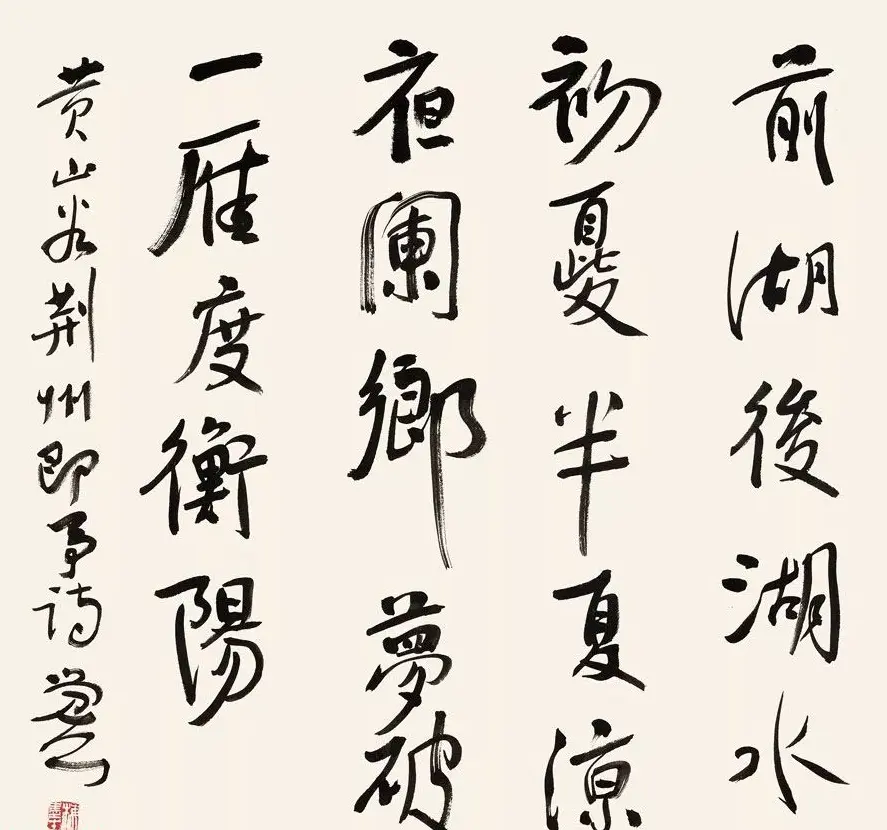 前湖後湖水
初夏半夏涼
夜闌鄉夢破
一雁度衡陽
黄山谷荆州即事詩